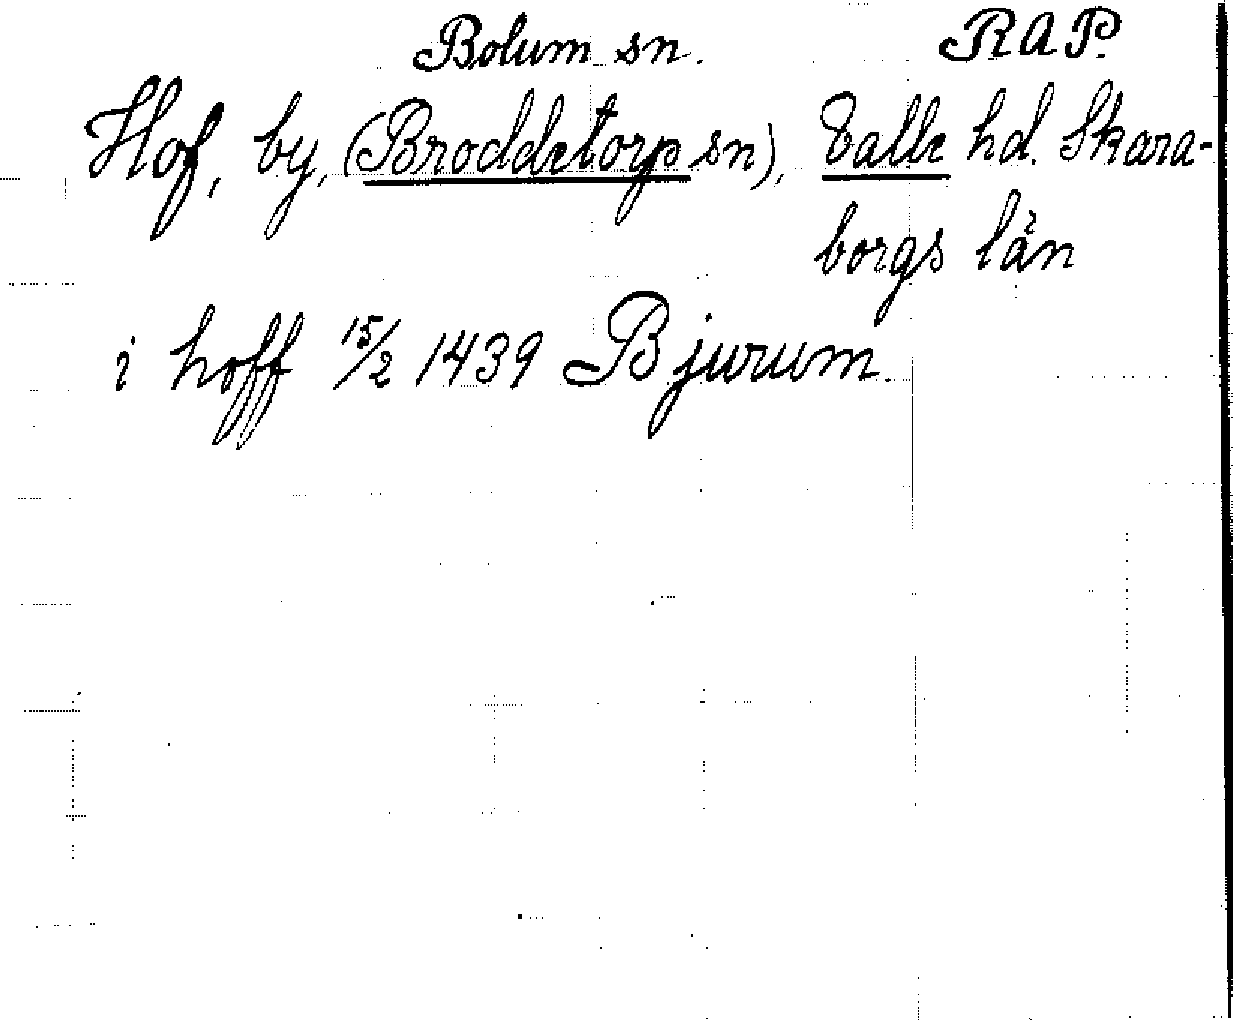 Bolum sn. RAP.
Hof, by, (Broddetorp sn), Valle hd. Skara-
borgs län
i hoff 15/2 1439 Bjurum.